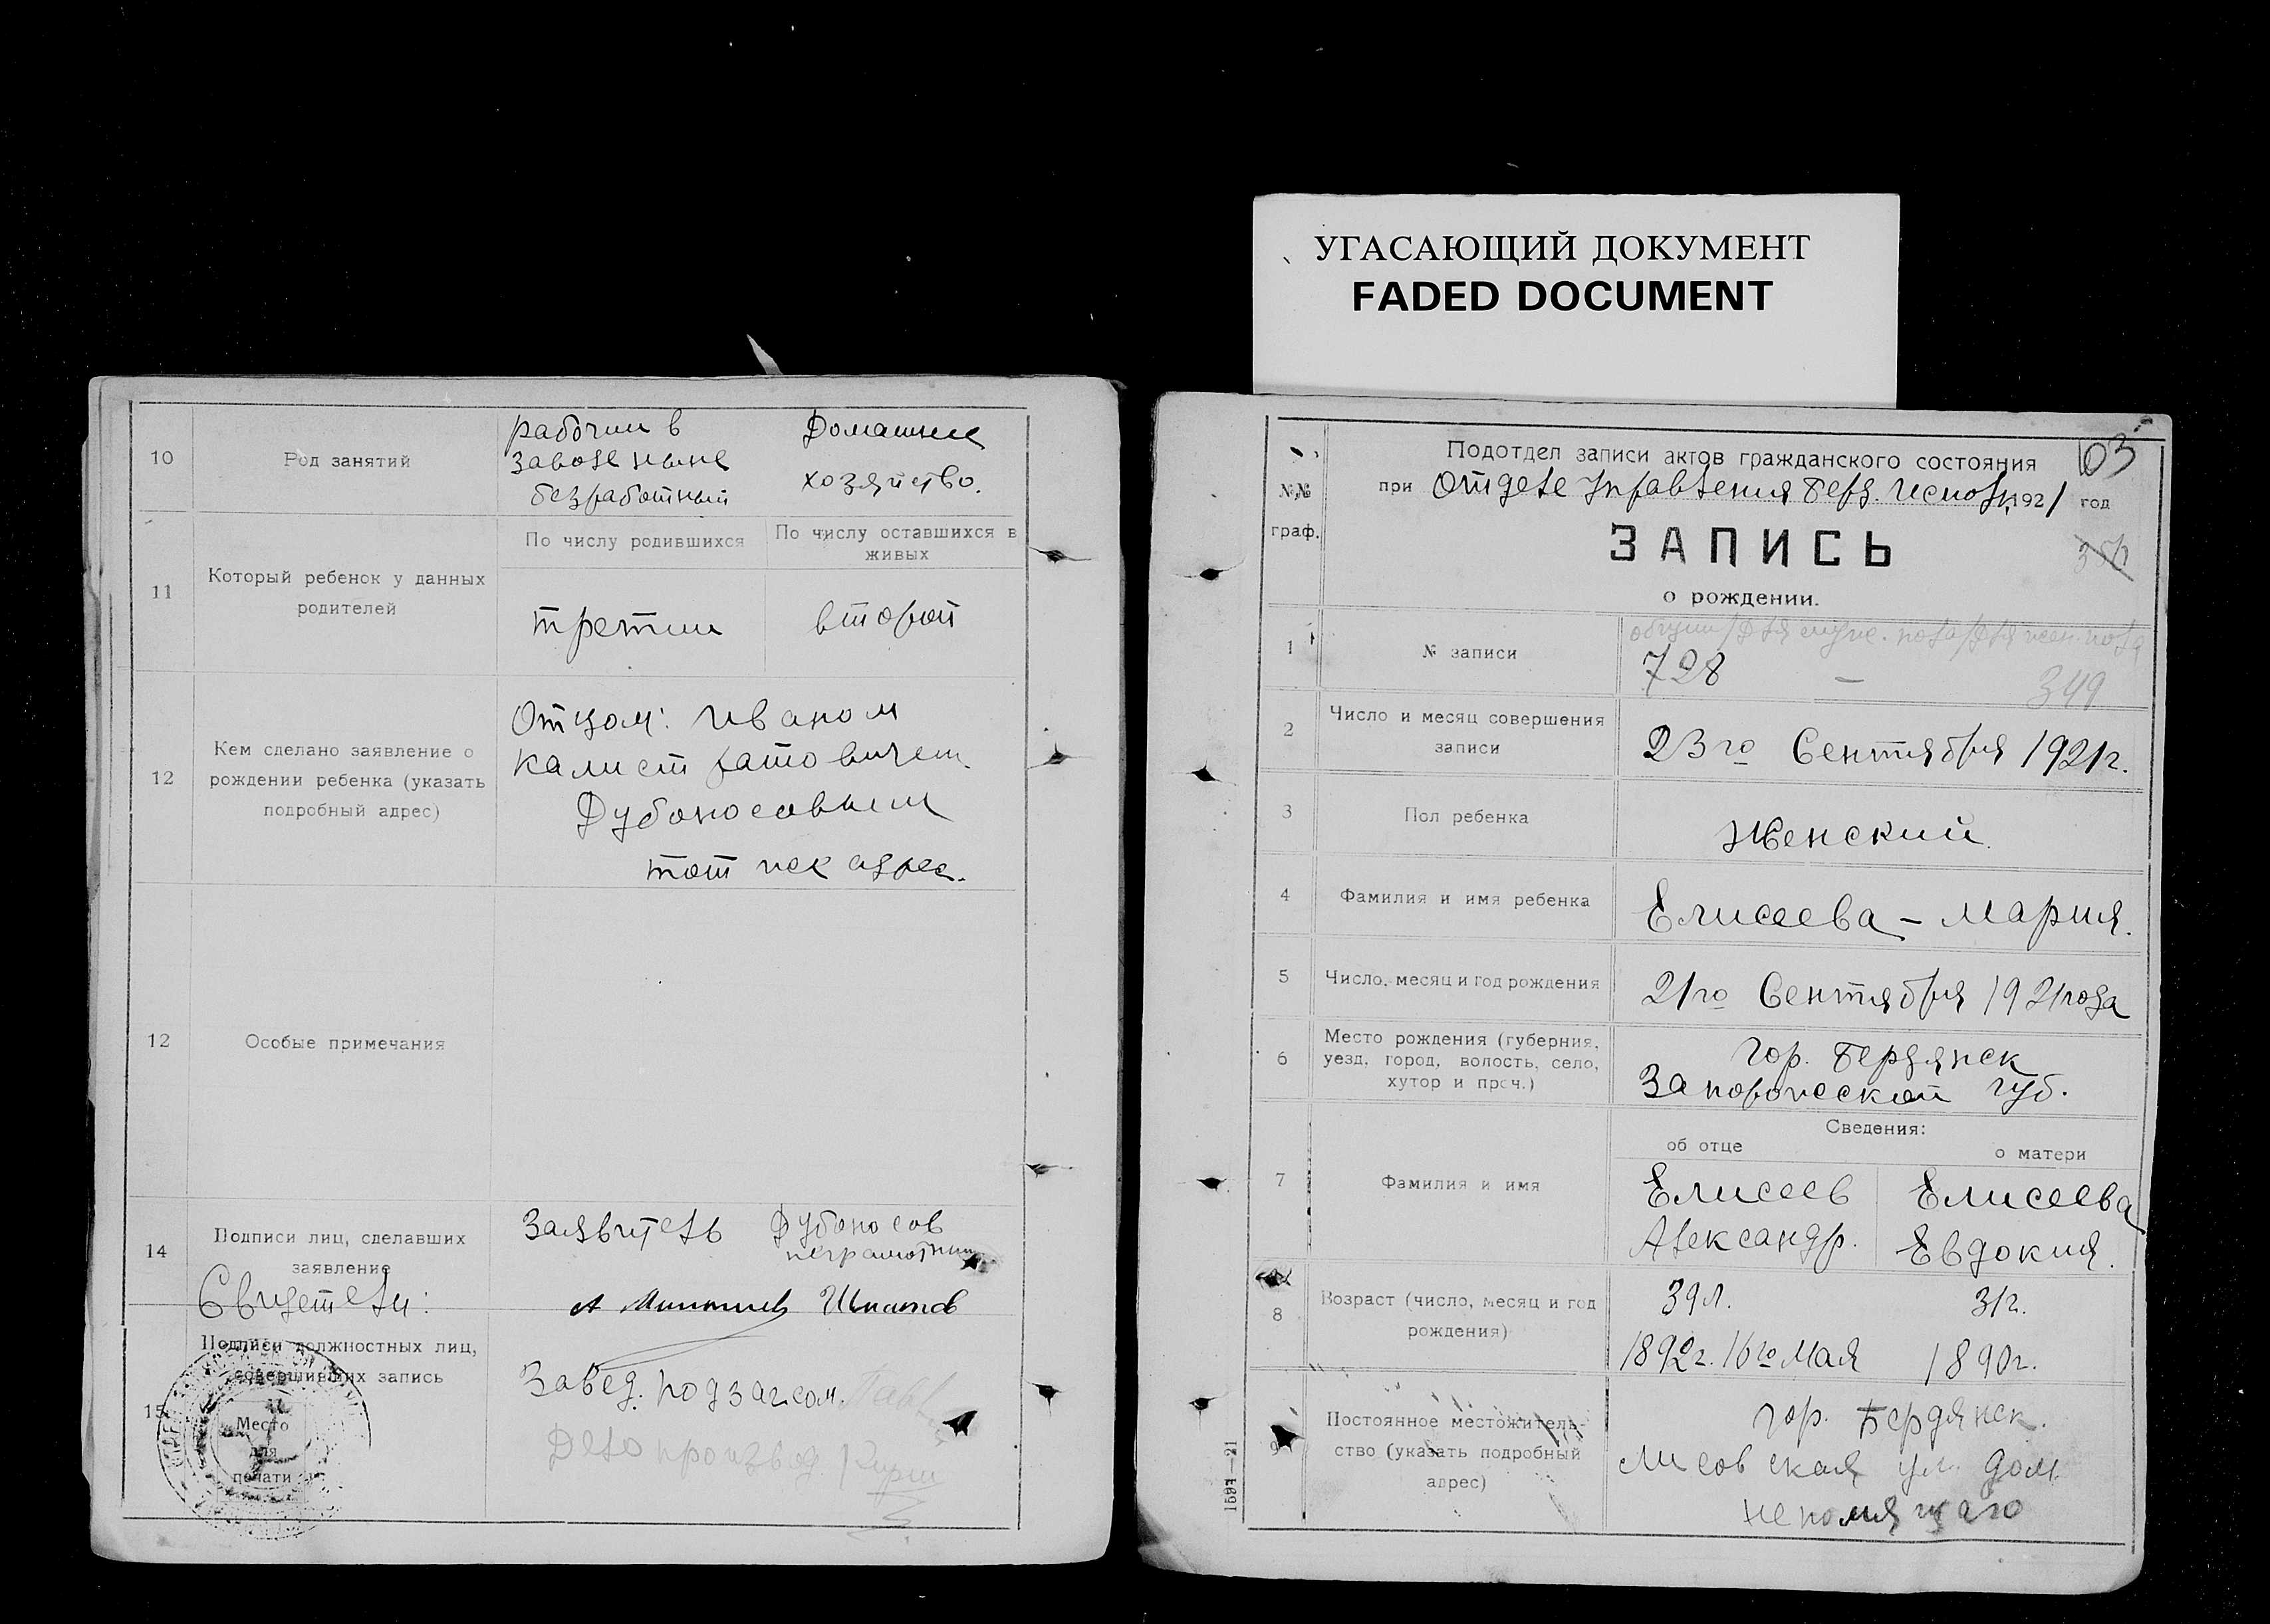 УГАСАЮЩИЙ ДОКУМЕНТ
FADED DOCUMENT
10
Род занятий
рабочий в
заводе ныне
безработный
Домашнее
хозяйство.
11
Который ребенок у данных
родителей
По числу родившихся
По числу оставшихся в
живых
третий
второй
12
Кем сделано заявление о
рождении ребенка (указать
подробный адрес)
Отцом: Иваном
Калистратовичем
Дубоносовым
тот же адрес.
12
Особые примечания
14
Подписи лиц, сделавших
заявление
Свидетели:
Заявитель Дубоносов
неграмотный
А Игнатов
15
Подписи должностных лиц,
совершивших запись
Место
для
печати
Завед. подзагсом.
Делопроизвод.
103
Подотдел записи актов гражданского состояния
№№
граф.
при Отделе Управления Берд. Исполк. 1921 год
ЗАПИСЬ
о рождении.
1
№ записи
общий/для муж. пола/для жен. пола
728 — 349
2
Число и месяц совершения
записи
23го Сентября 1921г.
3
Пол ребенка
Женский
4
Фамилия и имя ребенка
Елисеева - Мария.
5
Число, месяц и год рождения
21го Сентября 1921года
6
Место рождения (губерния,
уезд, город, волость, село,
хутор и проч.)
гор. Бердянск
Запорожской губ.
Сведения:
об отце
о матери
7
Фамилия и имя
Елисеев
Александр.
Елисеева
Евдокия.
8
Возраст (число, месяц и год
рождения)
39л.
1892г. 16го Мая
31г.
1890г.
9
Постоянное местожитель-
ство (указать подробный
адрес)
гор. Бердянск.
Лисовская ул. дом.
Непомящаго
1591—21